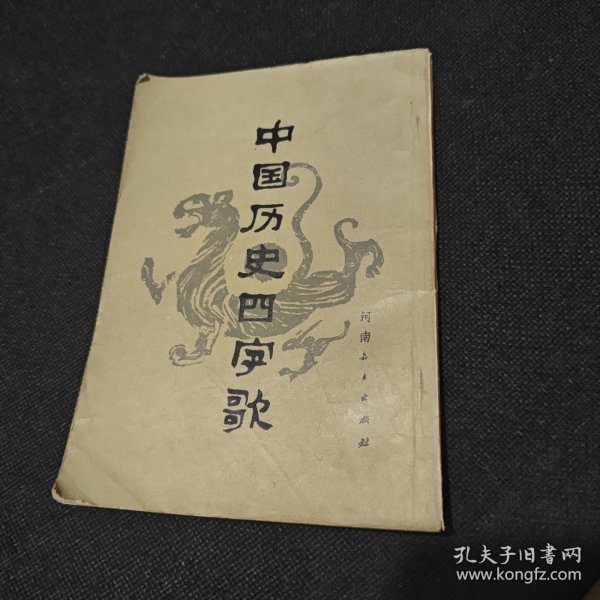 中国历史四字歌
河南人民出版社
孔夫子旧書网
www.kongfz.com